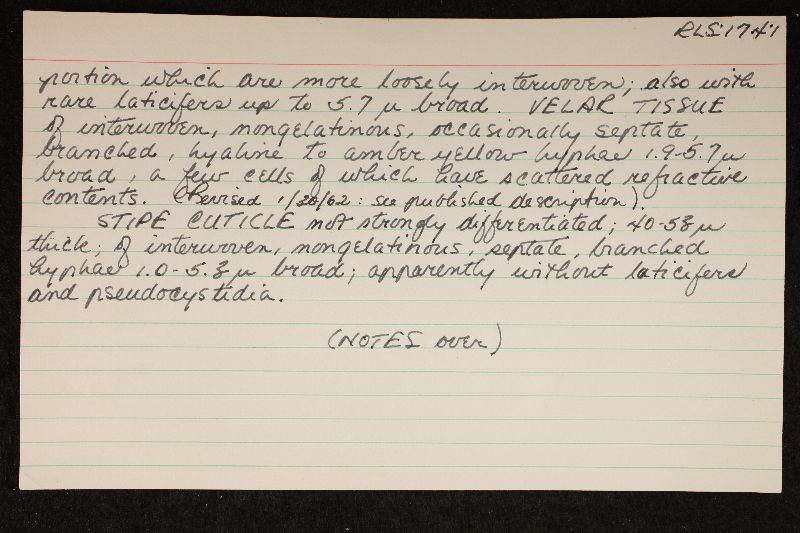 RLS 1741
portion which are more loosely interwoven; also with
rare laticifers up to 5.7 µ broad. VELAR TISSUE
of interwoven, nongelatinous, occasionally septate,
branched, hyaline to amber yellow hyphae 1.9-5.7 µ
broad, a few cells of which have scattered refractive
contents. (Revised 1/20/62: see published description).
STIPE CUTICLE not strongly differentiated; 40-58 µ
thick; of interwoven, nongelatinous, septate, branched
hyphae 1.0-5.8 µ broad; apparently without laticifers
and pseudocystidia.
(NOTES over)